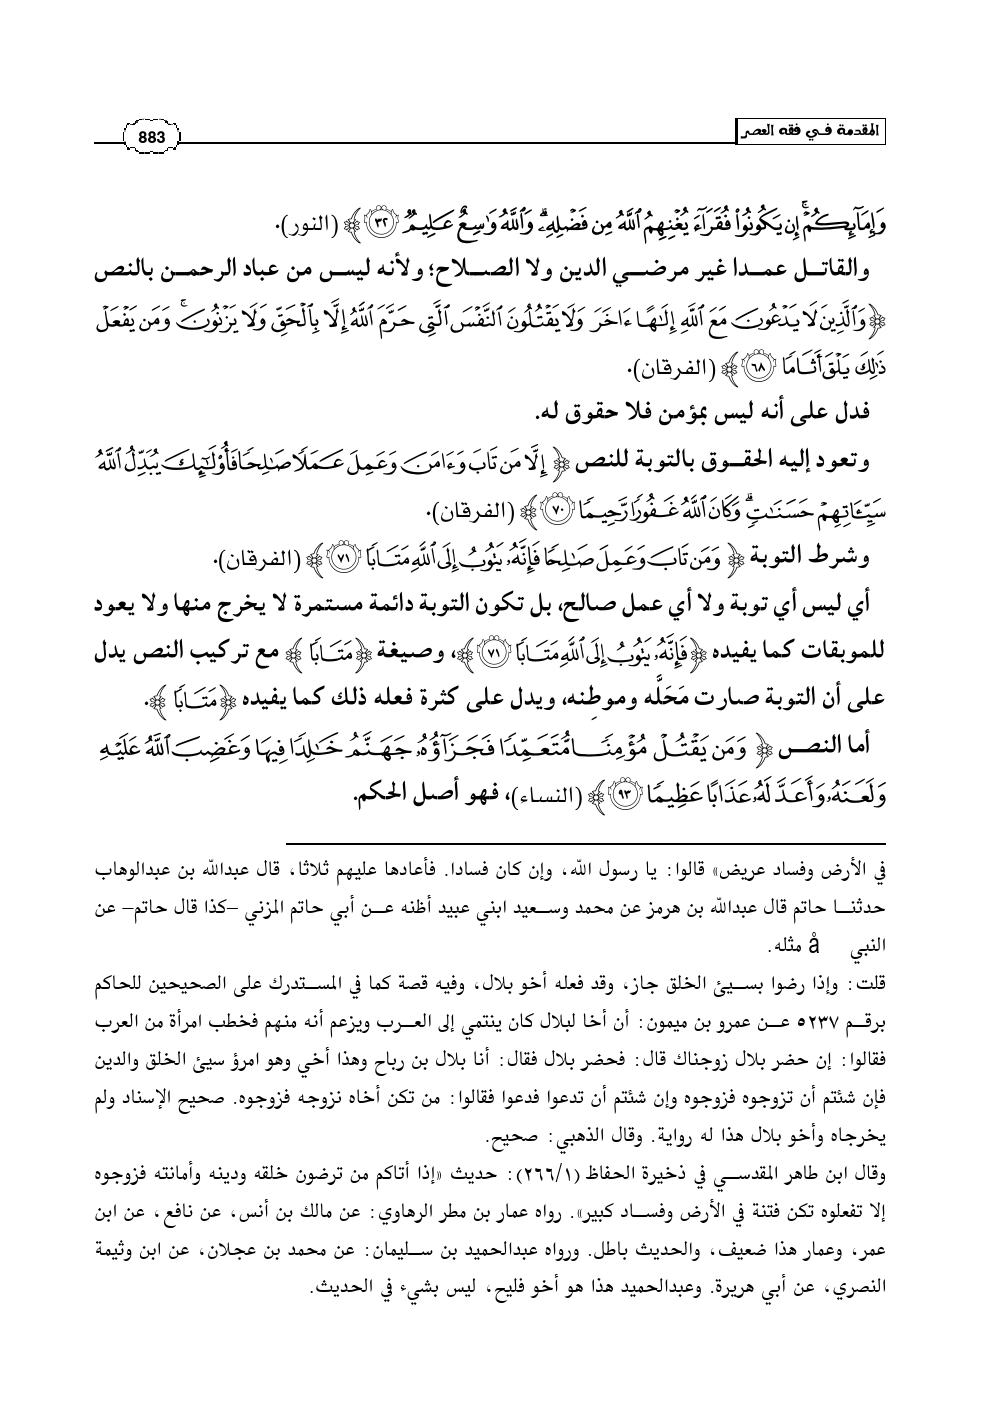 المقدمة في فقه العصر
883
وَإِمَآئِكُمْ ۚ إِن يَكُونُوا۟ فُقَرَآءَ يُغْنِهِمُ ٱللَّهُ مِن فَضْلِهِۦ ۗ وَٱللَّهُ وَٰسِعٌ عَلِيمٌ ﴿٣٢﴾ (النور).
والقاتل عمدا غير مرضي الدين ولا الصلاح؛ ولأنه ليس من عباد الرحمن بالنص
﴿وَٱلَّذِينَ لَا يَدْعُونَ مَعَ ٱللَّهِ إِلَٰهًا ءَاخَرَ وَلَا يَقْتُلُونَ ٱلنَّفْسَ ٱلَّتِى حَرَّمَ ٱللَّهُ إِلَّا بِٱلْحَقِّ وَلَا يَزْنُونَ ۚ وَمَن يَفْعَلْ
ذَٰلِكَ يَلْقَ أَثَامًا ٦٨﴾ (الفرقان).
فدل على أنه ليس بمؤمن فلا حقوق له.
وتعود إليه الحقوق بالتوبة للنص ﴿إِلَّا مَن تَابَ وَءَامَنَ وَعَمِلَ عَمَلًا صَٰلِحًا فَأُو۟لَٰٓئِكَ يُبَدِّلُ ٱللَّهُ
سَيِّـَٔاتِهِمْ حَسَنَٰتٍ ۗ وَكَانَ ٱللَّهُ غَفُورًا رَّحِيمًا ٧٠﴾ (الفرقان).
وشرط التوبة ﴿وَمَن تَابَ وَعَمِلَ صَٰلِحًا فَإِنَّهُۥ يَتُوبُ إِلَى ٱللَّهِ مَتَابًا ٧١﴾ (الفرقان).
أي ليس أي توبة ولا أي عمل صالح، بل تكون التوبة دائمة مستمرة لا يخرج منها ولا يعود
للموبقات كما يفيده ﴿فَإِنَّهُۥ يَتُوبُ إِلَى ٱللَّهِ مَتَابًا ٧١﴾، وصيغة ﴿مَتَابًا﴾ مع تركيب النص يدل
على أن التوبة صارت مَحَلَّه وموطنِه، ويدل على كثرة فعله ذلك كما يفيده ﴿مَتَابًا﴾.
أما النص ﴿وَمَن يَقْتُلْ مُؤْمِنًا مُّتَعَمِّدًا فَجَزَآؤُهُۥ جَهَنَّمُ خَٰلِدًا فِيهَا وَغَضِبَ ٱللَّهُ عَلَيْهِ
وَلَعَنَهُۥ وَأَعَدَّ لَهُۥ عَذَابًا عَظِيمًا ٩٣﴾ (النساء)، فهو أصل الحكم.
في الأرض وفساد عريض» قالوا: يا رسول الله، وإن كان فسادا. فأعادها عليهم ثلاثا، قال عبدالله بن عبدالوهاب
حدثنا حاتم قال عبدالله بن هرمز عن محمد وسعيد ابني عبيد أظنه عن أبي حاتم المزني –كذا قال حاتم– عن
النبي å مثله.
قلت: وإذا رضوا بسيئ الخلق جاز، وقد فعله أخو بلال، وفيه قصة كما في المستدرك على الصحيحين للحاكم
برقم ٥٢٣٧ عن عمرو بن ميمون: أن أخا لبلال كان ينتمي إلى العرب ويزعم أنه منهم فخطب امرأة من العرب
فقالوا: إن حضر بلال زوجناك قال: فحضر بلال فقال: أنا بلال بن رباح وهذا أخي وهو امرؤ سيئ الخلق والدين
فإن شئتم أن تزوجوه فزوجوه وإن شئتم أن تدعوا فدعوا فقالوا: من تكن أخاه نزوجه فزوجوه. صحيح الإسناد ولم
يخرجاه وأخو بلال هذا له رواية. وقال الذهبي: صحيح.
وقال ابن طاهر المقدسي في ذخيرة الحفاظ (٢٦٦/١): حديث «إذا أتاكم من ترضون خلقه ودينه وأمانته فزوجوه
إلا تفعلوه تكن فتنة في الأرض وفساد كبير». رواه عمار بن مطر الرهاوي: عن مالك بن أنس، عن نافع، عن ابن
عمر، وعمار هذا ضعيف، والحديث باطل. ورواه عبدالحميد بن سليمان: عن محمد بن عجلان، عن ابن وثيمة
النصري، عن أبي هريرة. وعبدالحميد هذا هو أخو فليح، ليس بشيء في الحديث.